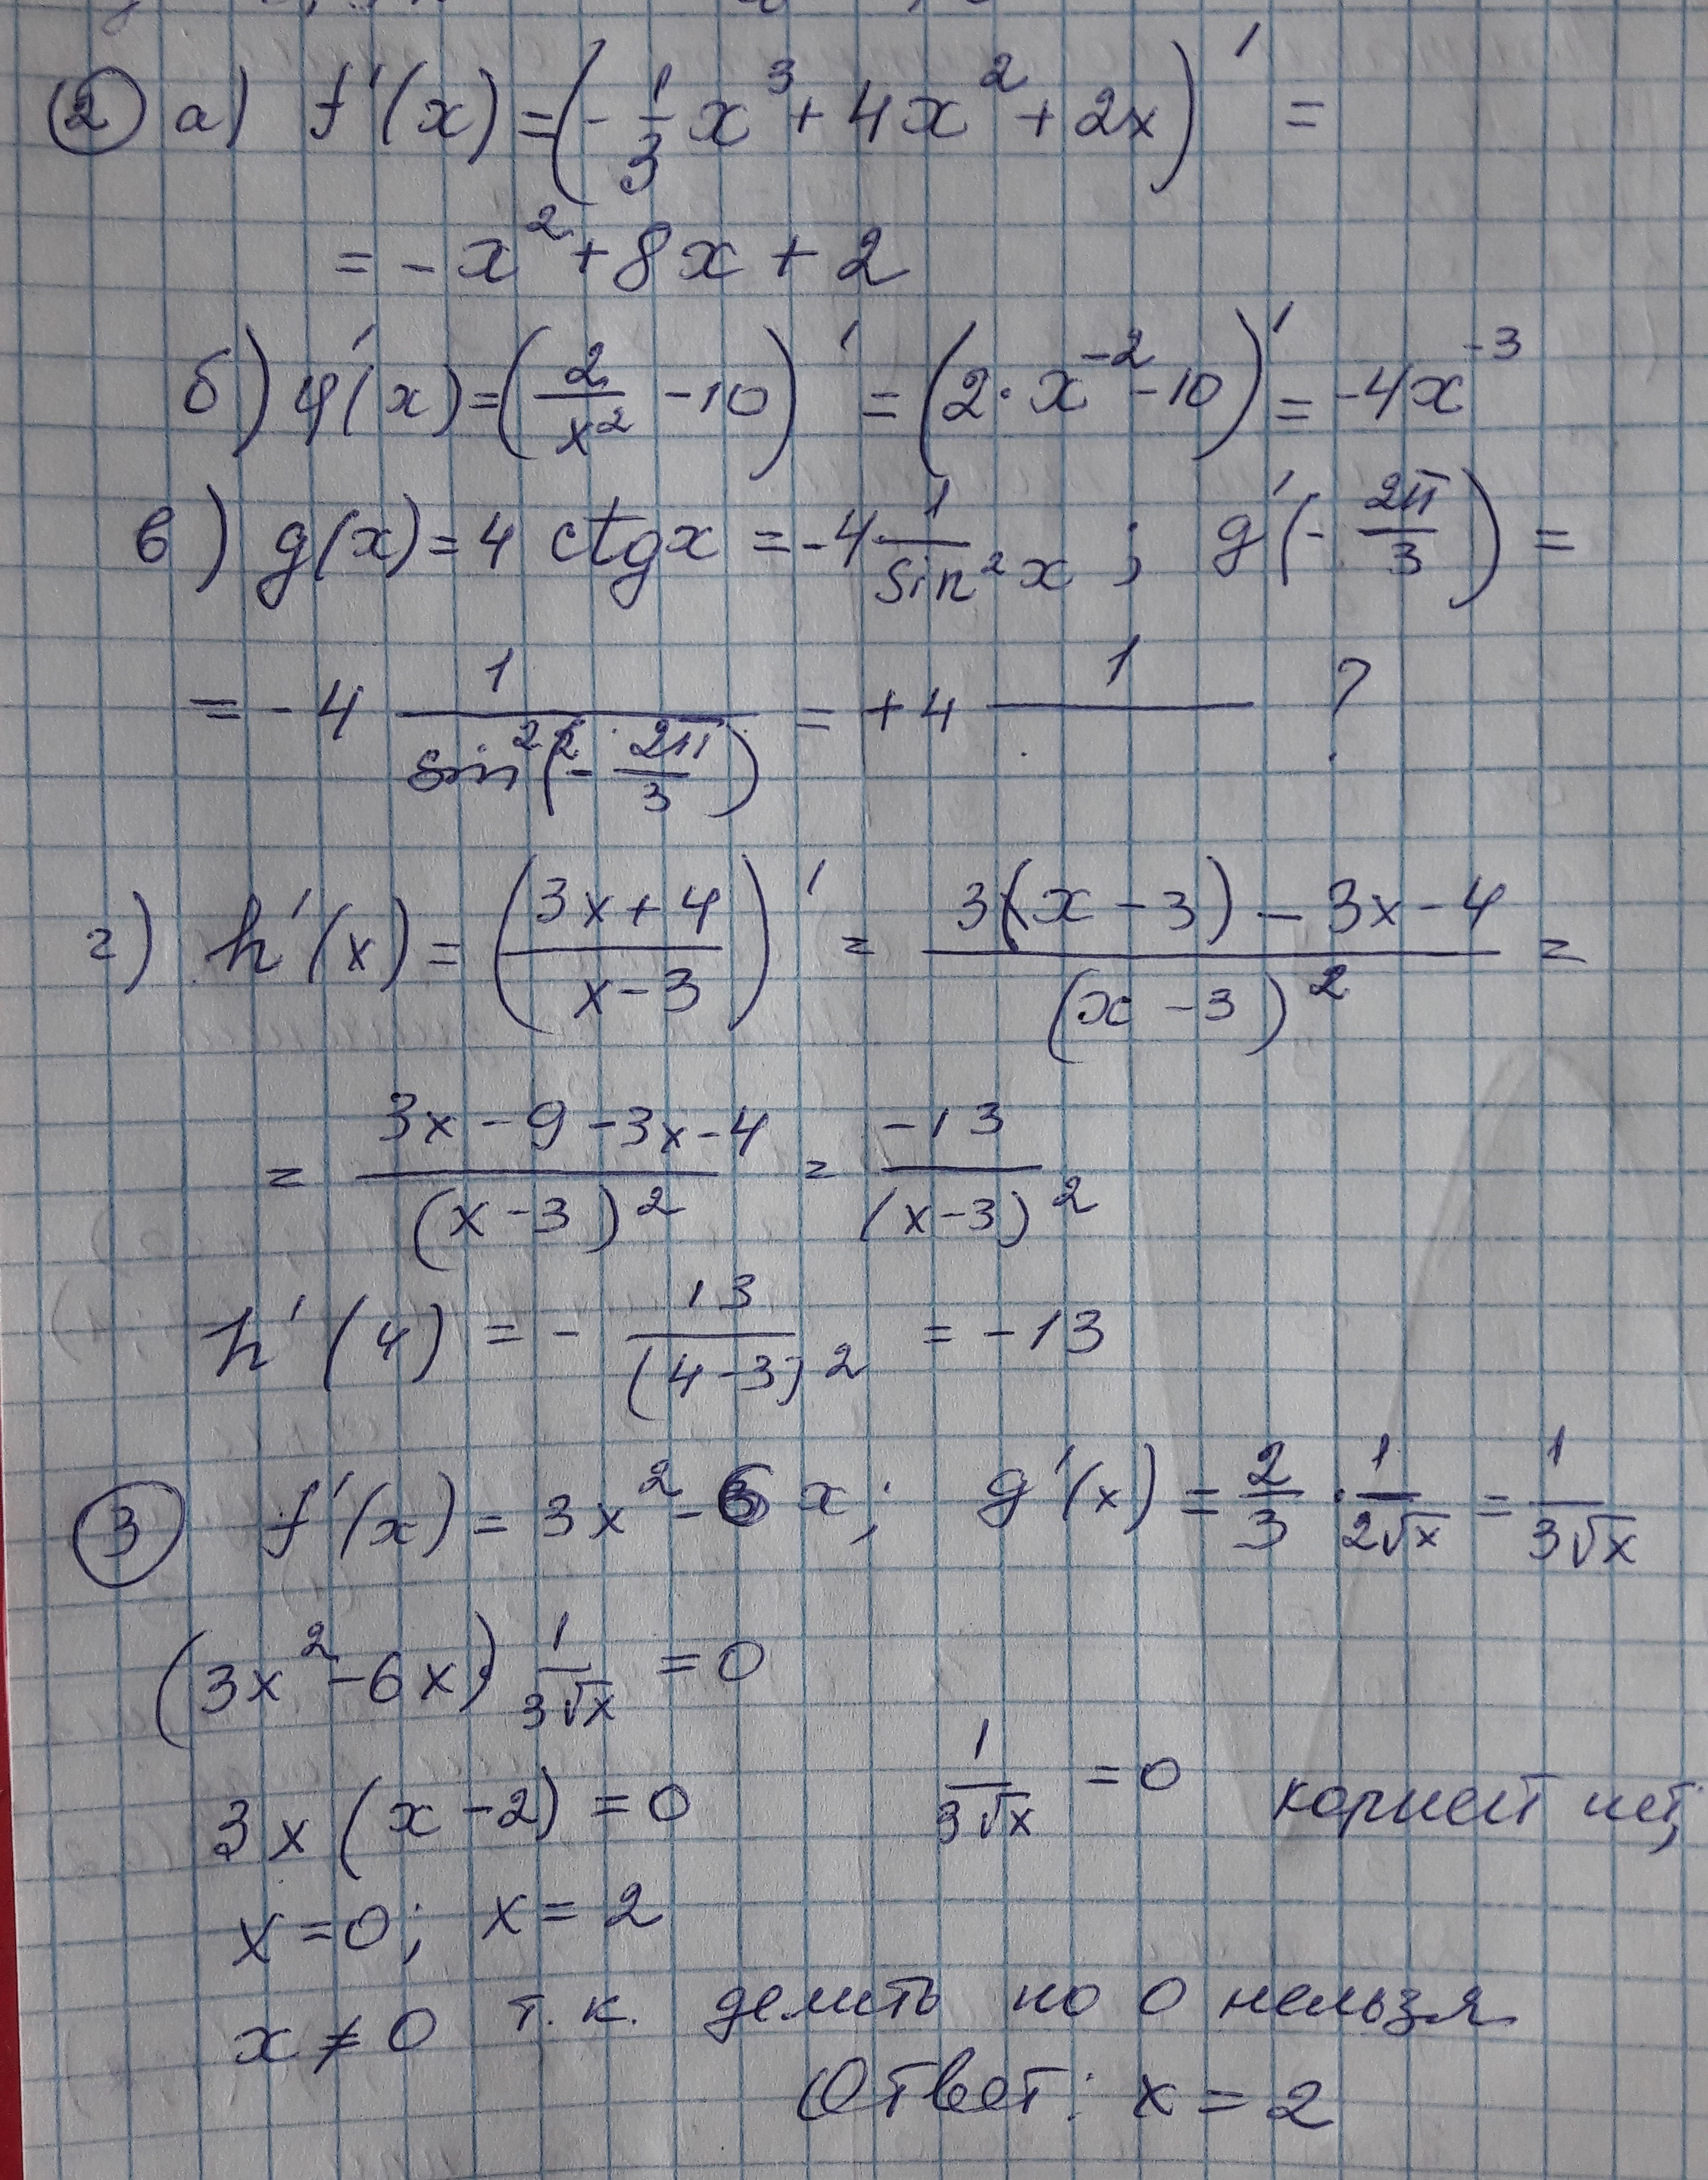 ② а) f'(x) = (-1/3 x³ + 4x² + 2x)' =
= -x² + 8x + 2
б) φ'(x) = (2/x² - 10)' = (2·x⁻² - 10)' = -4x⁻³
в) g(x) = 4 ctgx = -4·1/sin²x ; g'(-2π/3) =
= -4 1/sin²(-2π/3) = +4 1/ ?
г) h'(x) = ((3x+4)/(x-3))' = (3(x-3) - 3x - 4)/(x-3)² =
= (3x - 9 - 3x - 4)/(x-3)² = -13/(x-3)²
h'(4) = - 13/(4-3)² = -13
③ f'(x) = 3x² - 6x; g'(x) = 2/3 · 1/(2√x) = 1/(3√x)
(3x² - 6x)· 1/(3√x) = 0
3x(x-2) = 0 1/(3√x) = 0 корней нет,
x = 0; x = 2
x ≠ 0 т.к. делить на 0 нельзя
Ответ: x = 2